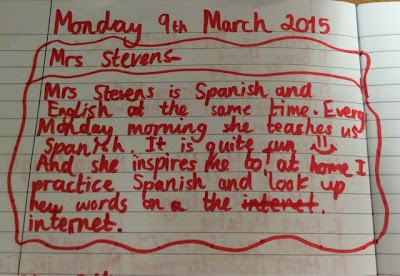 Monday 9th March 2015
Mrs Stevens
Mrs Stevens is Spanish and
English at the same time. Every
Monday morning she teaches us
Spanish. It is quite fun
And she inspires me to, at home I
practice Spanish and look up
new words on a the internet.
internet.